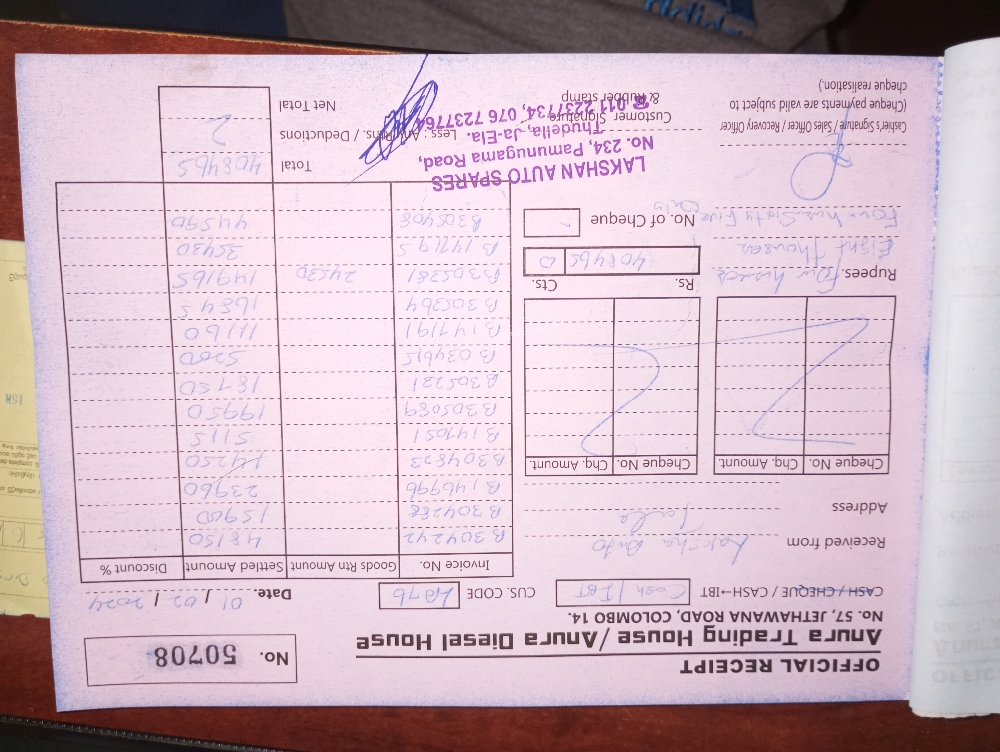 OFFICIAL RECEIPT
Anura Trading House / Anura Diesel House
NO. 57, JETHAWANA ROAD, COLOMBO 14.
No. 50708
CASH / CHEQUE / CASH→IBT Cash / IBT
CUS. CODE
Date. 01 / 02 / 2024
Received from Lakshan Auto
Address
Cheque No. Chq. Amount. Cheque No. Chq. Amount.
Rupees. Four hundred
Eight Thousand
Four hundred Sixty Five
Only
Rs. Cts.
408465 0
No. of Cheque
Invoice No. Goods Rtn Amount Settled Amount Discount %
B304242 48150
B304288 15900
B146996 23960
B304823 14250
B147051 5115
B305089 19950
B305221 18750
B034615 5200
B147191 11160
B305364 16845
B305381 24530 149165
B147195 35430
B305408 44590
Total 408465
Less: Any Rtns. / Deductions
Net Total
Cashier's Signature / Sales Officer / Recovery Officer
(Cheque payments are valid subject to
cheque realisation.)
Customer Signature
& Rubber stamp
LAKSHAN AUTO SPARES
No. 234, Pamunugama Road,
Thudella, Ja-Ela.
☎ 011 2237734, 076 7237764